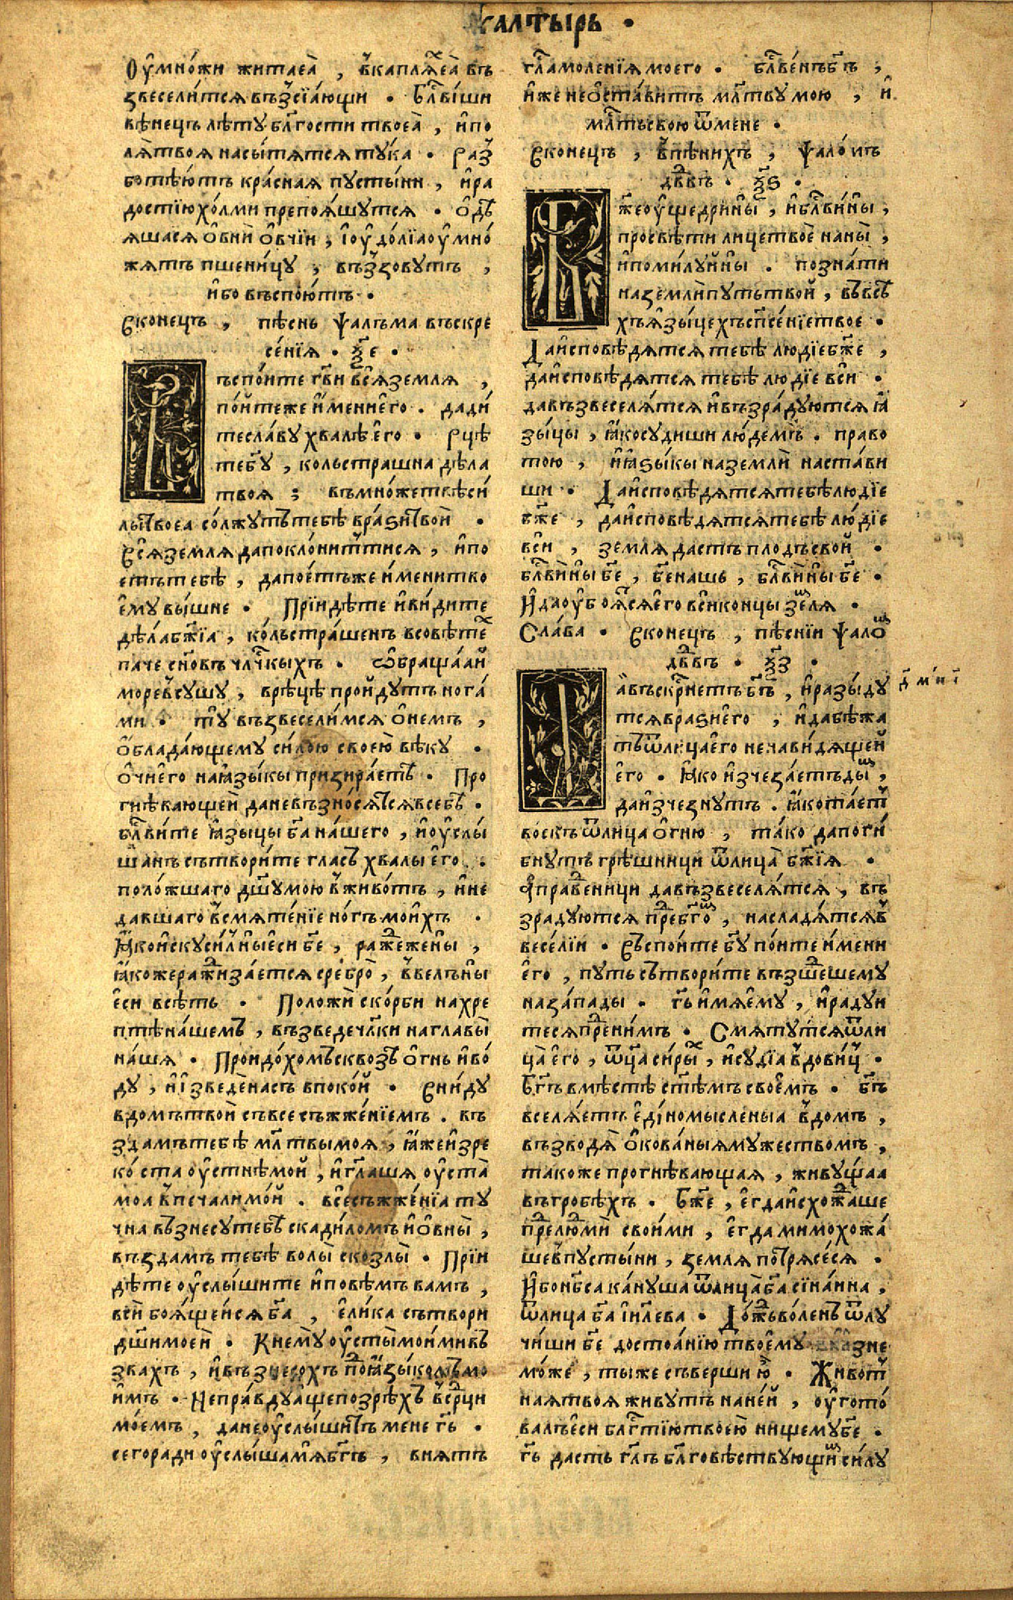 Ѱалтырь ·
Оу҆мно́жи жита еѧ̀ , в҆каплѧ́хъ еѧ̀ въ
звеселитсѧ въз̾сїа́ющи · Бл҃ви́ши
вѣ́нецъ лѣ́ту бл҃гости твоеѧ̀ , и҆по
лѧ̀ твоѧ насы́тѧтсѧ тука · Раз̾
ботѣ́ютъ кра́снаѧ пусты́ни , и҆ра
достїю хо́лми препоѧ́шутсѧ · Одѣ́
ѧшасѧ о҆вни о҆вчїи , і҆оу҆до́лїа оу҆мно́
жѧтъ пшени́цу , въз̾зовутъ ,
и҆бо въспою́тъ ·
Вконецъ , пѣснь ѱалъма въскре
се́нїѧ · ѯ҃е ·
Въспо́ите гв҃и всѧ̀ землѧ ,
по́йтеже и҆мени е҆го · дади́
те сла́ву хвалѣ̀ е҆го · Рцѣ́те
бг҃у , кольстрашна дѣ́ла
твоѧ ; въмно́жетвѣ си́
лы̀ твоеа со́лжутъ тебѣ̀ врази̾ твои ·
Всѧ̀ землѧ да покло́нитътисѧ , и҆по
етъ тебѣ̀ , да пое́тъже и҆мени тво
е҆му вы́шне · Прїидѣ́те и҆ви́дите
дѣ́ла бж҃їа , ко́льстра́шенъ всовѣ́тех
паче сн҃овъ чл҃чкыхъ · Ѡ҆браща́ай
мо́ре в҆сушу , врѣцѣ̀ про́йдутъ нога́
ми · ту възвесели́мсѧ о҆немъ ,
о҆блада́ющему си́лою своею вѣ́ку ·
о҆чи е҆го на ꙗ҆зы́кы призира́етѣ · Про
гнѣ́вающеи да невъзно́сѧтсѧ всебѣ ·
бл҃ви́те ꙗ҆зы́цы ба҃ на́шего , и҆оу҆слы́
шанъ сътвори́те гласъ хвалы̀ е҆го ·
поло́жшаго дш҃у мою̀ в҆живо́тъ , и҆не
да́вшаго в҆смѧте́нїе но́гъ мои́хъ ·
Ꙗ҆ко и҆скуси́лны е҆си бе҃ , раж̾же́женны ,
ꙗ҆коже раж̾ҙиза́етсѧ сребро̀ , в҆веде́ ны
е҆си всѣ́ть · Поло́жи ско́рби на хре
птѣ̀ на́шемъ , възведе́ чл҃ки на главы̀
на́ша · Проидо́хомъ сквозѣ̀ о҆гнь и҆во́
ду , и҆и҆зведе насъ впоко́й · Вни́ду
вдо́мъ твой съвсесъжже́нїемъ . въ
зда́мъ тебѣ̀ мл҃твы моѧ̀ , ꙗ҆же и҆зре
ко́ста оу҆стнѣ̀ мои , и҆гл҃аша оу҆ста̀
моа в҆печали мо́й . всесъжже́нїа ту
чна възнесу тебѣ̀ скади́ломъ и҆о҆вны̀ ,
въздамъ тебѣ̀ волы̀ скозлы̀ · Прїи
дѣ́те оу҆слы́шите и҆повѣ́мъ вамъ ,
вси боѧ́щеисѧ ба҃ , е҆лика сътвори
дш҃и моей · Кнему оу҆сты моимивъ
звахъ , и҆възнесохъ под̾ ꙗ҆зы́комъ мо
и҆мъ · Непра́вду аще позрѣ́хъ въср҃ци
мо́емъ , да не оу҆слы́шитъ мене гь҃ ·
сегоради оу҆слы́ша мѧ бг҃ъ , внѧтъ
гл҃а моле́нїѧ моего · бл҃ве́нъ бг҃ъ ,
и҆же не о҆ста́витъ мл҃тву мою , и҆
мл҃ть свою ѿ мене ·
Вконецъ , в҆пѣ́нихъ , ѱало́мъ
дв҃въ · ѯ҃ѕ ·
Бж҃е оу҆щедри́ ны̀ , и҆бл҃ви́ ны̀ ,
просвѣ́ти лице твое на ны̀ ,
и҆поми́луй ны̀ . позна́ти
на земли̾ путь твой , въвсѣ
хъ ꙗ҆зы́цехъ сп҃сенїе твое ·
Да и҆сповѣ́дѧтсѧ тебѣ̀ лю́дїе бж҃е ,
да и҆сповѣ́дѧтсѧ тебѣ̀ лю́дїе вси ·
да възвеселѧ́тсѧ и҆възра́дуютсѧ ꙗ҆
зы́цы , ꙗ҆ко су́диши лю́демъ . право
тою , и҆ꙗ҆зы́кы на земли̾ наста́ви
ши · Да и҆сповѣ́дѧтсѧ тебѣ̀ лю́дїе
бж҃е , да и҆сповѣ́дѧтсѧ тебѣ̀ лю́дїе
вси , землѧ̀ дастъ пло́дъ свой ·
бл҃ви́ ны бе҃ , бе҃ нашь , бл҃ви́ ны бе҃ ·
И҆да оу҆боѧ́тсѧ е҆го вси конци зе҃лѧ ·
Сла́ва · Вконецъ , пѣ́снїи ѱало́м
дв҃въ · ѯ҃з ·
Да въскр҃нетъ бг҃ъ , и҆разы́ду
тсѧ врази е҆го , и҆да бѣжа
тъ ѿ лица е҆го ненави́дѧщеи
е҆го · Ꙗ҆ко и҆зчеза́етъ дым ,
да и҆зчезнутъ . ꙗ҆ко та́ет
воскъ ѿ лица о҆гню , та́ко да поги́
бнутъ грѣ́шници ѿ лица̀ бж҃їѧ ·
А҆праведници да възвеселѧ́тсѧ , въ
зра́дуютсѧ пред̾ бг҃ом , наслада́тсѧ в
весе́лїи · Въспо́ите бг҃у по́ите и҆мени
е҆го , путь сътвори́те възшедшему
на за́пады · гь҃ и҆мѧ е҆му , и҆ра́дуи
тесѧ пред̾ нимъ · Смѧтутсѧ ѿ ли
ца̀ е҆го , ѿц҃а си́рых , и҆суди́а в҆дови́ц ·
Бг҃ъ вмѣ́стѣ ст҃ѣмъ своемъ · бг҃ъ
вселѧ́етъ е҆ди́номысленыа в҆домъ ,
възводѧ̀ о҆кова́ныѧ му́жествомъ ,
такоже прогнѣ́вающаѧ , живу́щаа
въгробѣ́хъ · Бж҃е , е҆гда и҆схож̾даше
пред̾ лю́дми свои́ми , е҆гда мимохожа́
ше в҆пусты́ни , землѧ потрѧ́сесѧ ·
И҆бо нб҃са ка́нуша ѿ лица̀ ба҃ сїна́ина ,
ѿ лица ба҃ і҆и҃лева · Дож̾дь во́ленъ ѿлу
чи́ши бе҃ достоа́нїю твоему̀ и҆знe
може , ты же съверши ю̀ · Живот
наѧ твоѧ живутъ на ней , оу҆гото́
валъ е҆си бл҃гтїю твоею̀ ни́щему бе҃ ·
гь҃ дасть гл҃ъ бл҃говѣствующим си́лу